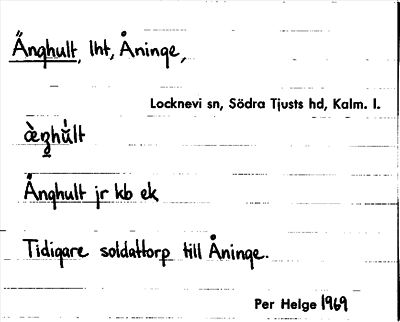 Änghult, lht, Åninge,
Locknevi sn, Södra Tjusts hd, Kalm. l.
Änghult jr kb ek
Tidigare soldattorp till Åninge.
Per Helge 1969